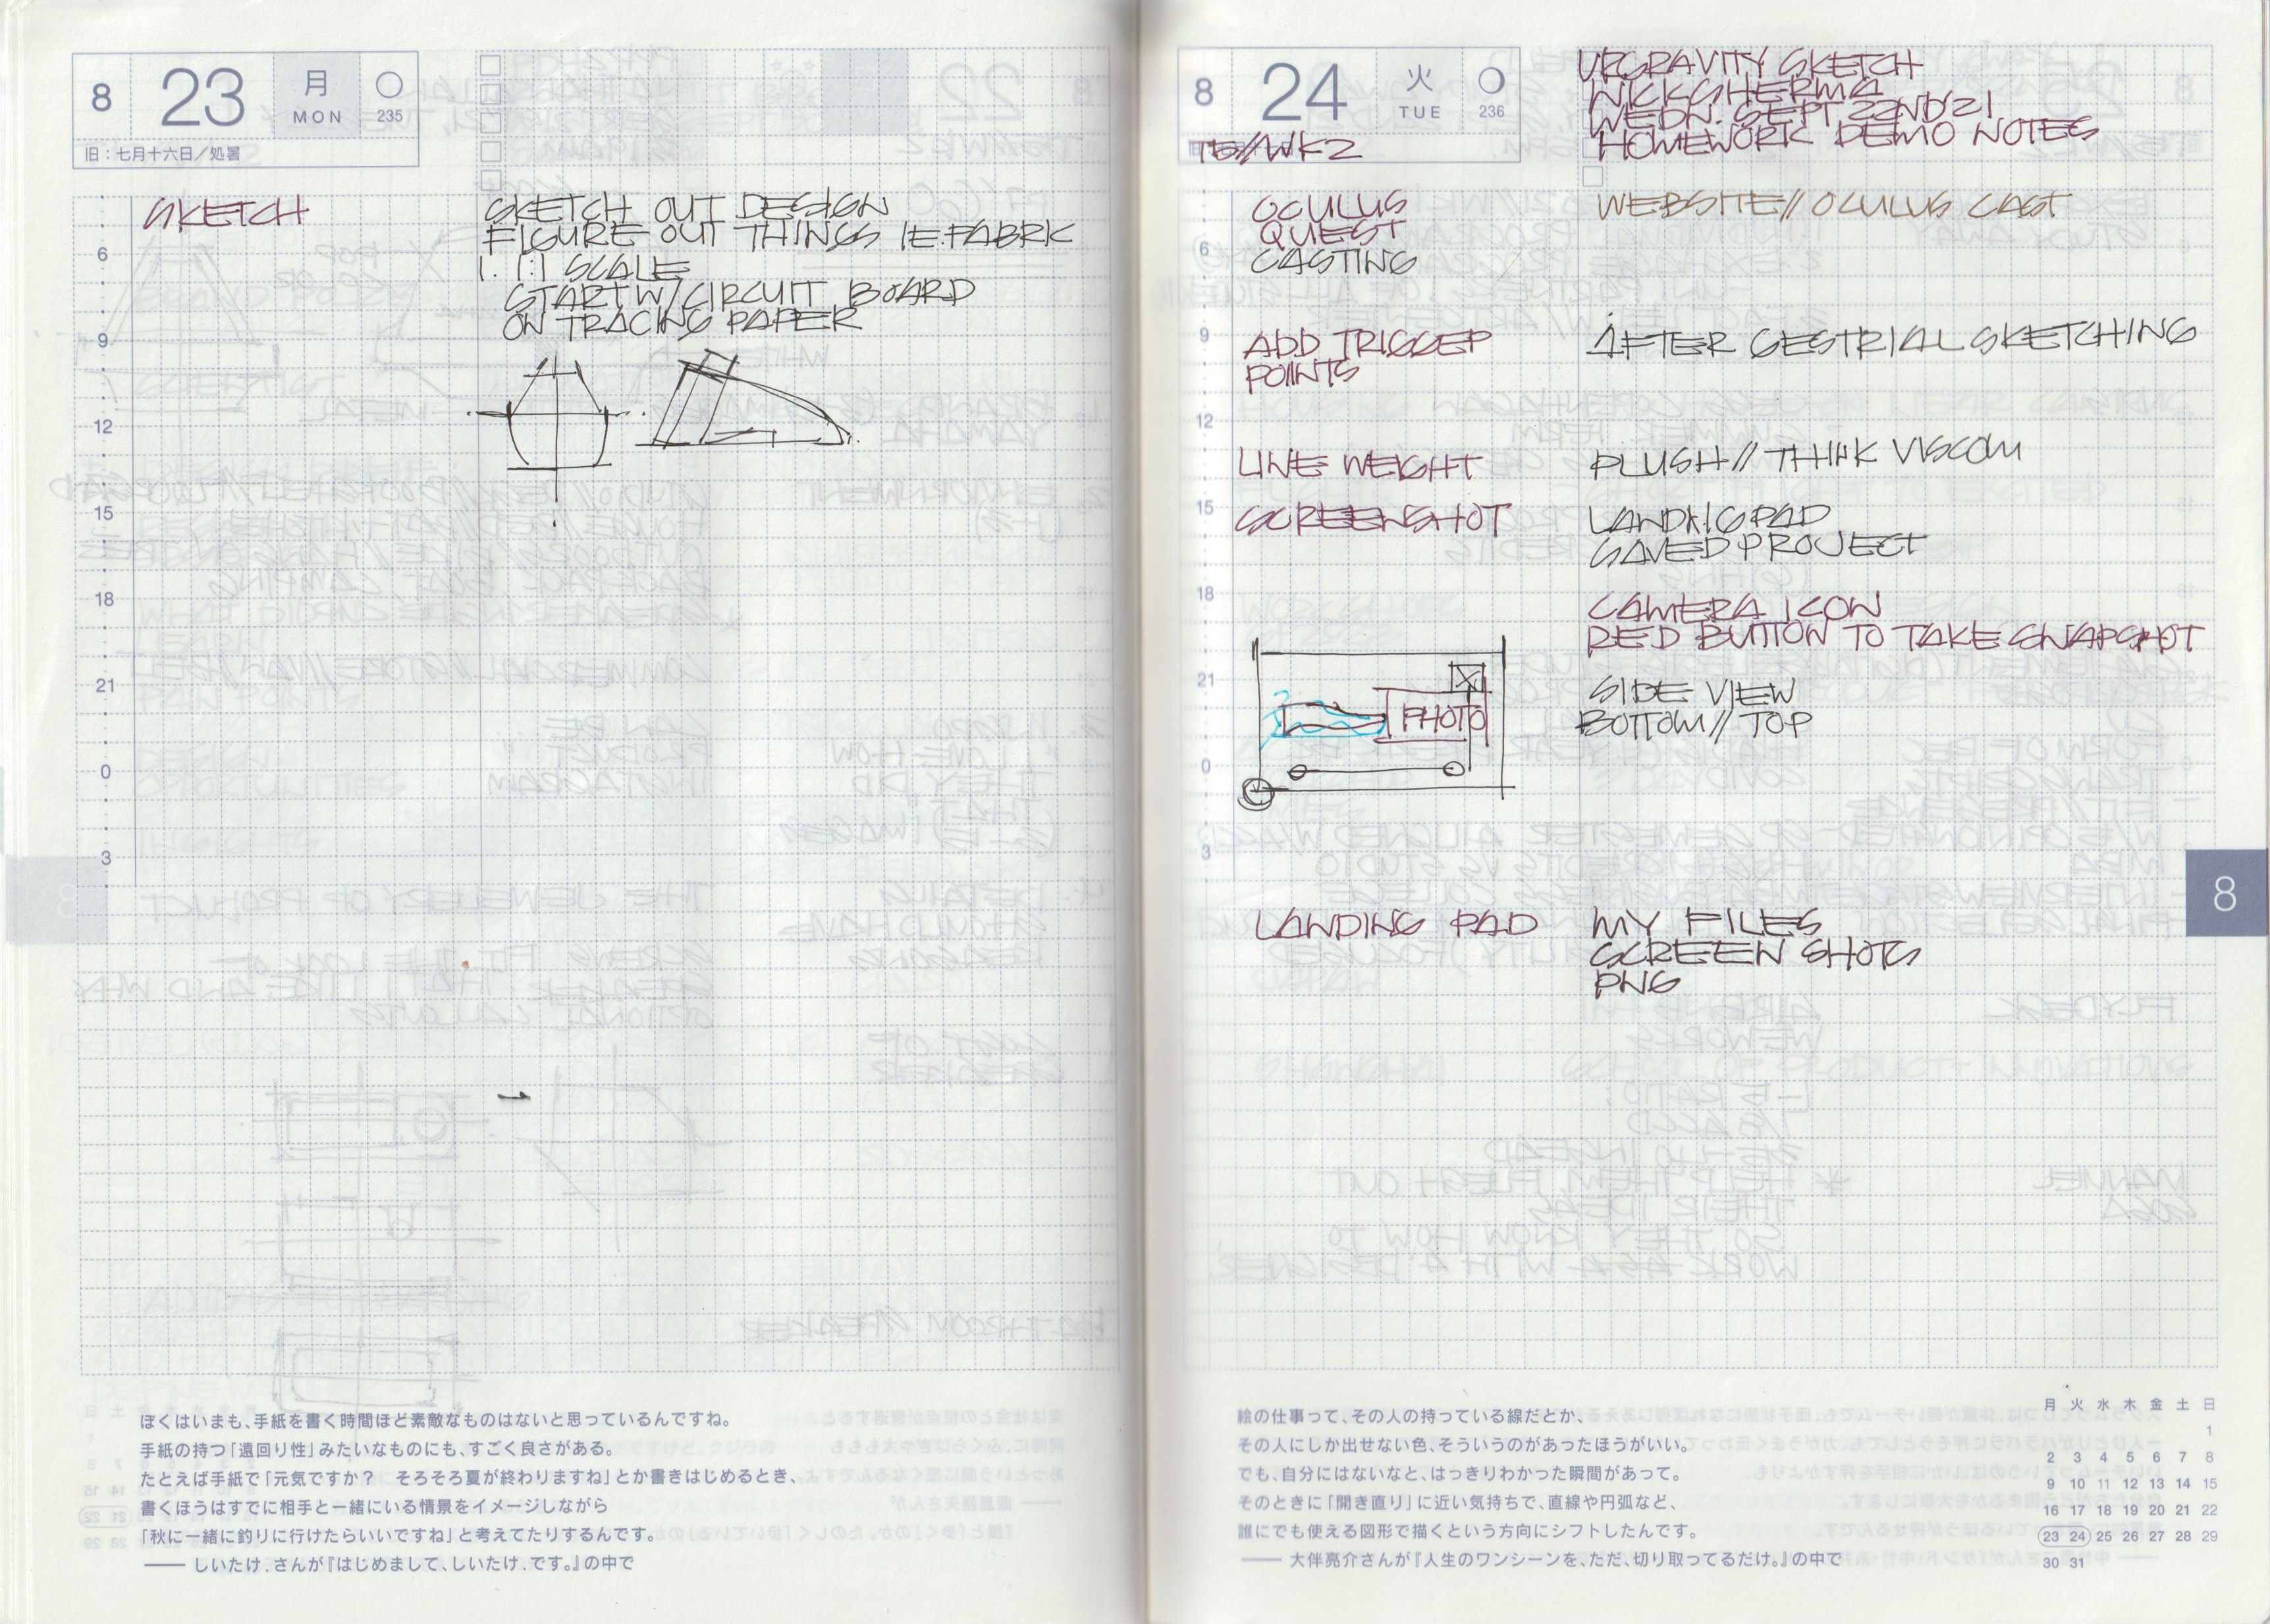 8 23 月 MON 235
旧：七月十六日／処暑
SKETCH
SKETCH OUT DESIGN
FIGURE OUT THINGS IE. FABRIC
1. 1:1 SCALE
START W/ CIRCUIT BOARD
ON TRACING PAPER
6
9
12
15
18
21
0
3
8
ぼくはいまも、手紙を書く時間ほど素敵なものはないと思っているんですね。
手紙の持つ「遠回り性」みたいなものにも、すごく良さがある。
たとえば手紙で「元気ですか？　そろそろ夏が終わりますね」とか書きはじめるとき、
書くほうはすでに相手と一緒にいる情景をイメージしながら
「秋に一緒に釣りに行けたらいいですね」と考えてたりするんです。
―― しいたけ．さんが『はじめまして、しいたけ．です。』の中で
8 24 火 TUE 236
WK2
GRAVITY SKETCH
WEDN. SEPT 22ND '21
HOMEWORK DEMO NOTES
OCULUS
QUEST
CASTING
WEBSITE // OCULUS CAST
ADD TRIGGER
POINTS
AFTER GESTRIAL SKETCHING
LINE WEIGHT
PLUSH // THINK VISCOM
SCREENSHOT
LANDING PAD
SAVED PROJECT
CAMERA ICON
RED BUTTON TO TAKE SNAPSHOT
PHOTO
SIDE VIEW
BOTTOM // TOP
LANDING PAD
MY FILES
SCREEN SHOTS
PNG
6
9
12
15
18
21
0
3
8
絵の仕事って、その人の持っている線だとか、
その人にしか出せない色、そういうのがあったほうがいい。
でも、自分にはないなと、はっきりわかった瞬間があって。
そのときに「開き直り」に近い気持ちで、直線や円弧など、
誰にでも使える図形で描くという方向にシフトしたんです。
―― 大伴亮介さんが『人生のワンシーンを、ただ、切り取ってるだけ。』の中で
月 火 水 木 金 土 日
1
2 3 4 5 6 7 8
9 10 11 12 13 14 15
16 17 18 19 20 21 22
23 24 25 26 27 28 29
30 31